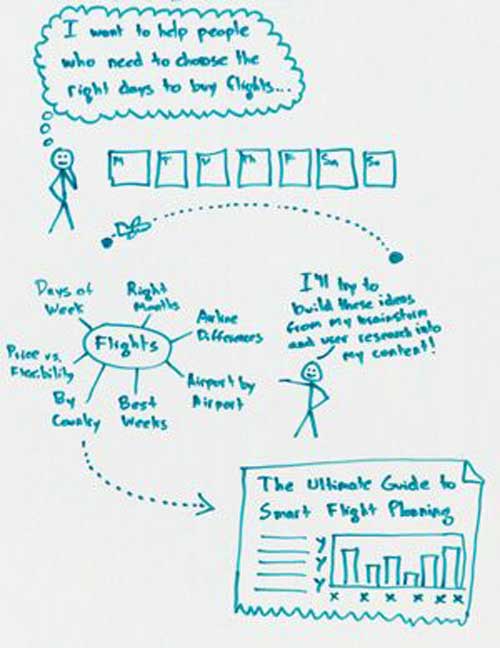 I want to help people
who need to choose the
right days to buy flights...
M T W Th F Sa Su
Days of
Week
Right
Months
Airline
Differences
Flights
Price vs.
Flexibility
Airport by
Airport
By
Country
Best
Weeks
I'll try to
build these ideas
from my brainstorm
and user research into
my content!
The Ultimate Guide to
Smart Flight Planning
y
y
y
x x x x x x